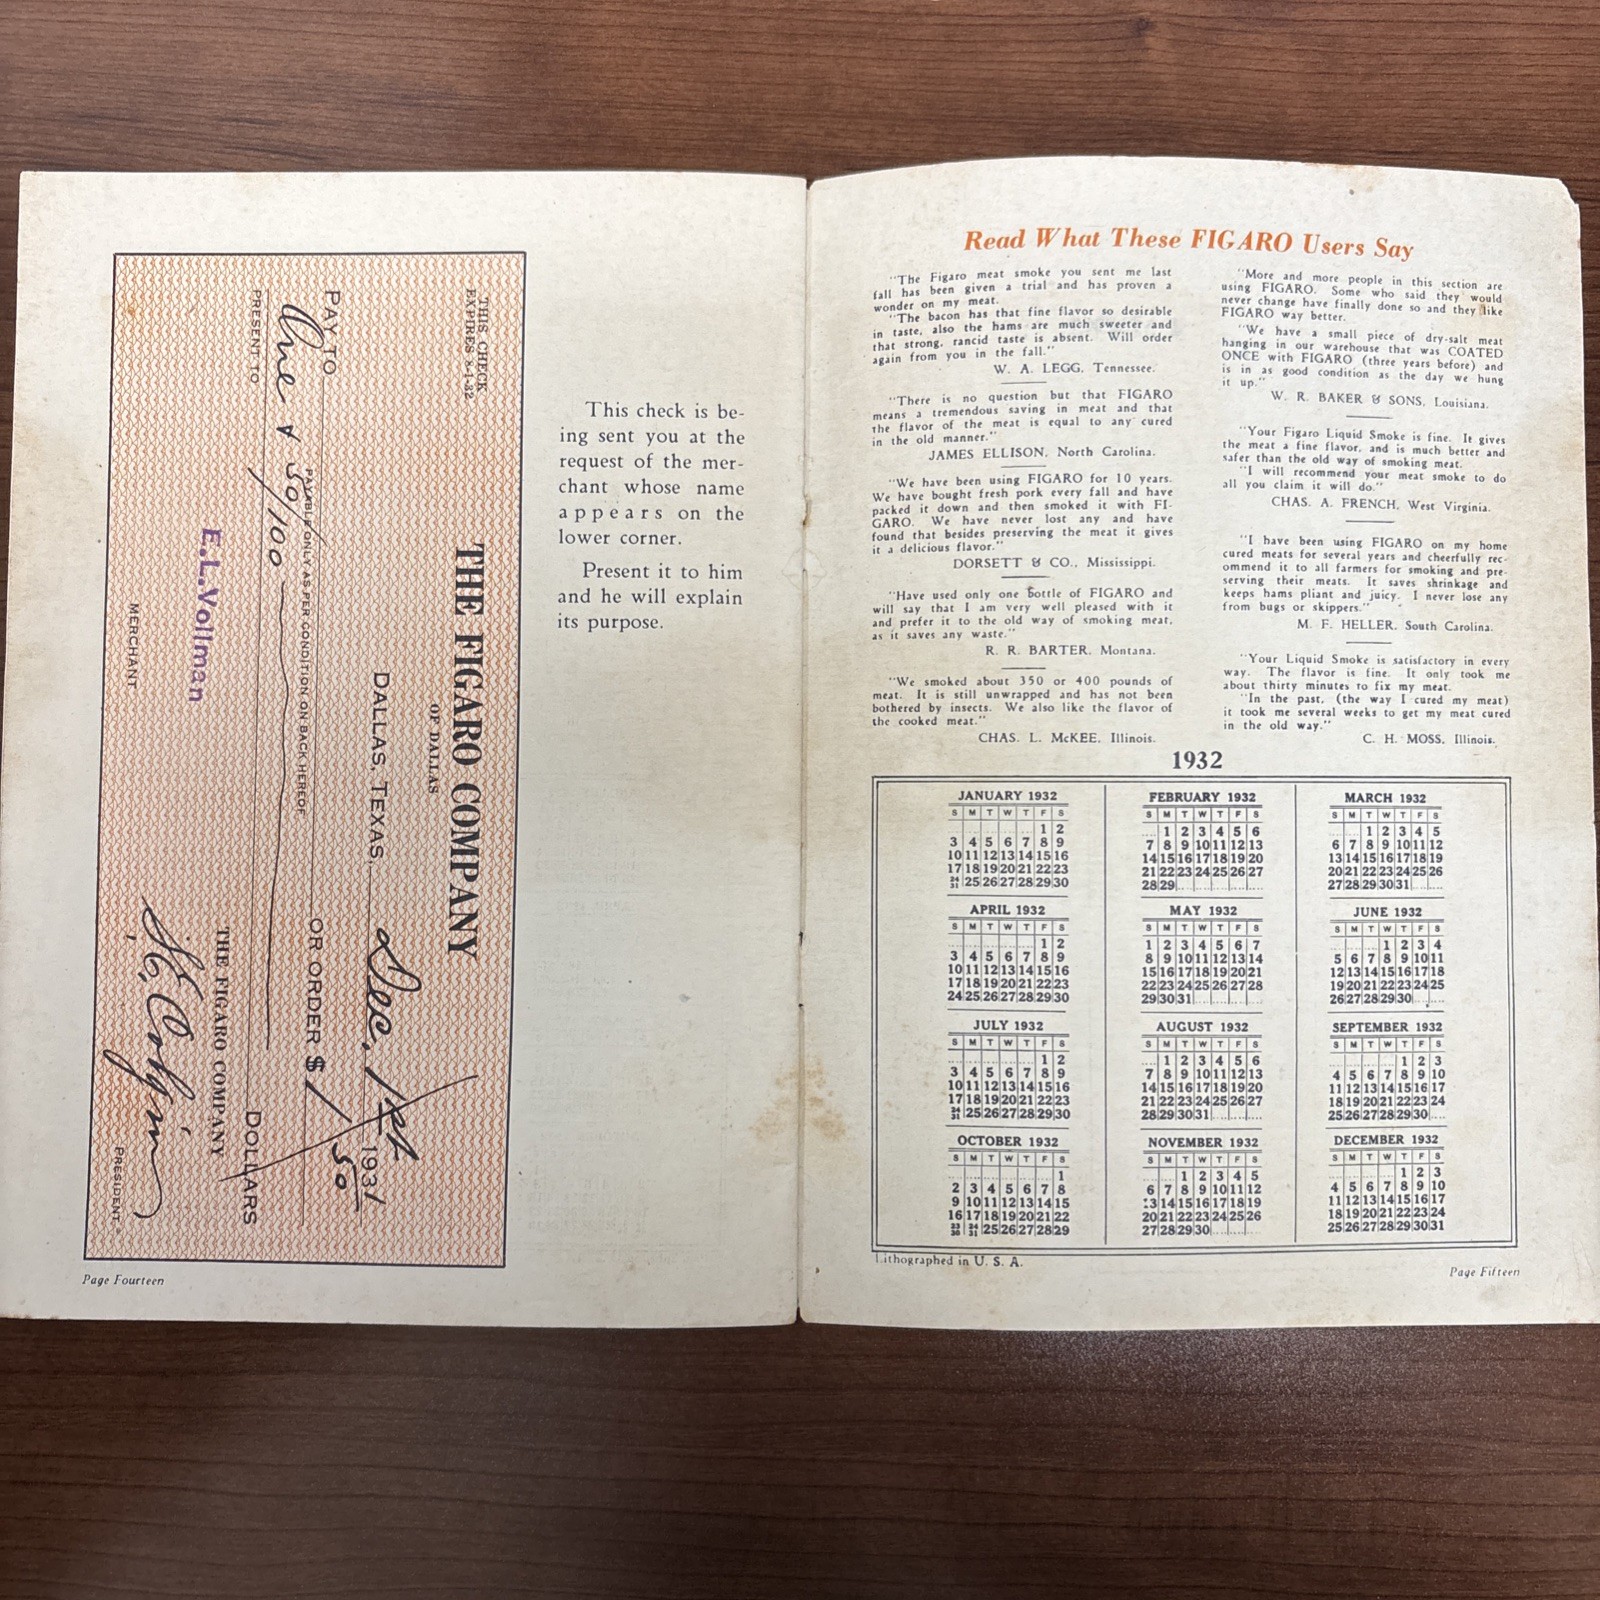 THIS CHECK
EXPIRES 8-1-32
THE FIGARO COMPANY
OF DALLAS
DALLAS, TEXAS, Dec. 1st 1931
PAY TO
OR ORDER $ 1 50
PAYABLE ONLY AS PER CONDITION ON BACK HEREOF
One & 50/100 DOLLARS
PRESENT TO
E.L.Vollman
MERCHANT
THE FIGARO COMPANY
PRESIDENT
This check is be-
ing sent you at the
request of the mer-
chant whose name
appears on the
lower corner.
Present it to him
and he will explain
its purpose.
Page Fourteen
Read What These FIGARO Users Say
"The Figaro meat smoke you sent me last
fall has been given a trial and has proven a
wonder on my meat.
"The bacon has that fine flavor so desirable
in taste, also the hams are much sweeter and
that strong, rancid taste is absent. Will order
again from you in the fall."
W. A. LEGG, Tennessee.
"There is no question but that FIGARO
means a tremendous saving in meat and that
the flavor of the meat is equal to any cured
in the old manner."
JAMES ELLISON, North Carolina.
"We have been using FIGARO for 10 years.
We have bought fresh pork every fall and have
packed it down and then smoked it with FI-
GARO. We have never lost any and have
found that besides preserving the meat it gives
it a delicious flavor."
DORSETT & CO., Mississippi.
"Have used only one bottle of FIGARO and
will say that I am very well pleased with it
and prefer it to the old way of smoking meat,
as it saves any waste."
R. R. BARTER, Montana.
"We smoked about 350 or 400 pounds of
meat. It is still unwrapped and has not been
bothered by insects. We also like the flavor of
the cooked meat."
CHAS. L. McKEE, Illinois.
"More and more people in this section are
using FIGARO. Some who said they would
never change have finally done so and they like
FIGARO way better.
"We have a small piece of dry-salt meat
hanging in our warehouse that was COATED
ONCE with FIGARO (three years before) and
is in as good condition as the day we hung
it up."
W. R. BAKER & SONS, Louisiana.
"Your Figaro Liquid Smoke is fine. It gives
the meat a fine flavor, and is much better and
safer than the old way of smoking meat.
"I will recommend your meat smoke to do
all you claim it will do."
CHAS. A. FRENCH, West Virginia.
"I have been using FIGARO on my home
cured meats for several years and cheerfully rec-
ommend it to all farmers for smoking and pre-
serving their meats. It saves shrinkage and
keeps hams pliant and juicy. I never lose any
from bugs or skippers."
M. F. HELLER, South Carolina.
"Your Liquid Smoke is satisfactory in every
way. The flavor is fine. It only took me
about thirty minutes to fix my meat.
"In the past, (the way I cured my meat)
it took me several weeks to get my meat cured
in the old way."
C. H. MOSS, Illinois.
1932
JANUARY 1932
S M T W T F S
1 2
3 4 5 6 7 8 9
10 11 12 13 14 15 16
17 18 19 20 21 22 23
24/31 25 26 27 28 29 30
FEBRUARY 1932
S M T W T F S
1 2 3 4 5 6
7 8 9 10 11 12 13
14 15 16 17 18 19 20
21 22 23 24 25 26 27
28 29
MARCH 1932
S M T W T F S
1 2 3 4 5
6 7 8 9 10 11 12
13 14 15 16 17 18 19
20 21 22 23 24 25 26
27 28 29 30 31
APRIL 1932
S M T W T F S
1 2
3 4 5 6 7 8 9
10 11 12 13 14 15 16
17 18 19 20 21 22 23
24 25 26 27 28 29 30
MAY 1932
S M T W T F S
1 2 3 4 5 6 7
8 9 10 11 12 13 14
15 16 17 18 19 20 21
22 23 24 25 26 27 28
29 30 31
JUNE 1932
S M T W T F S
1 2 3 4
5 6 7 8 9 10 11
12 13 14 15 16 17 18
19 20 21 22 23 24 25
26 27 28 29 30
JULY 1932
S M T W T F S
1 2
3 4 5 6 7 8 9
10 11 12 13 14 15 16
17 18 19 20 21 22 23
24/31 25 26 27 28 29 30
AUGUST 1932
S M T W T F S
1 2 3 4 5 6
7 8 9 10 11 12 13
14 15 16 17 18 19 20
21 22 23 24 25 26 27
28 29 30 31
SEPTEMBER 1932
S M T W T F S
1 2 3
4 5 6 7 8 9 10
11 12 13 14 15 16 17
18 19 20 21 22 23 24
25 26 27 28 29 30
OCTOBER 1932
S M T W T F S
1
2 3 4 5 6 7 8
9 10 11 12 13 14 15
16 17 18 19 20 21 22
23/30 24/31 25 26 27 28 29
NOVEMBER 1932
S M T W T F S
1 2 3 4 5
6 7 8 9 10 11 12
13 14 15 16 17 18 19
20 21 22 23 24 25 26
27 28 29 30
DECEMBER 1932
S M T W T F S
1 2 3
4 5 6 7 8 9 10
11 12 13 14 15 16 17
18 19 20 21 22 23 24
25 26 27 28 29 30 31
Lithographed in U. S. A.
Page Fifteen